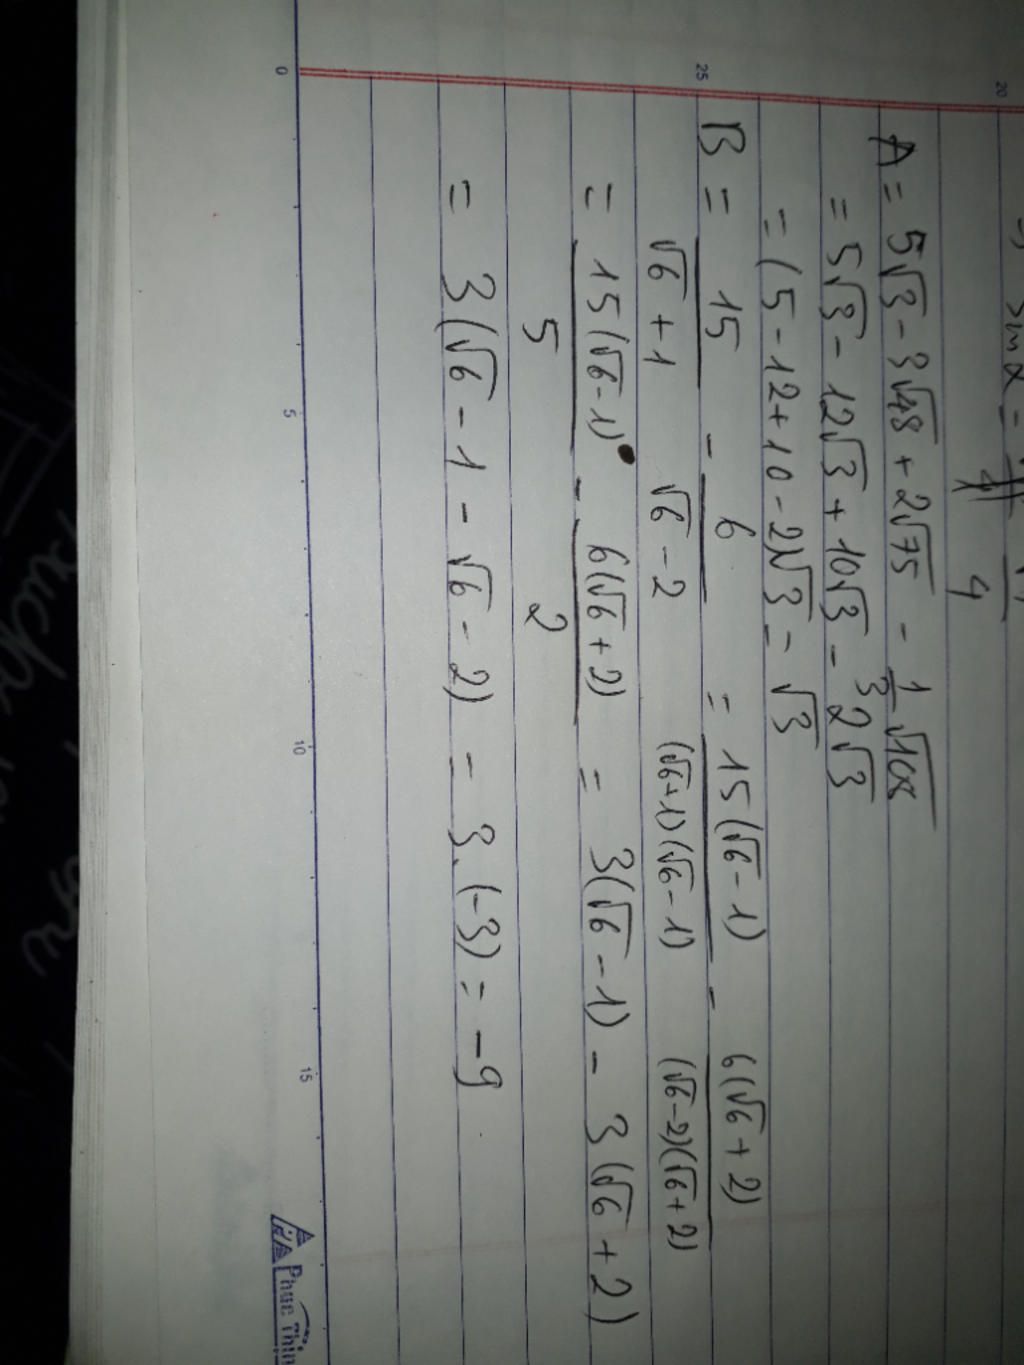 sin α =
4 4
A = 5√3 - 3√48 + 2√75 - 1/3 √108
= 5√3 - 12√3 + 10√3 - 2√3
= (5 - 12 + 10 - 2)√3 = √3
B = 15/(√6 + 1) - 6/(√6 - 2) = 15(√6 - 1)/(√6+1)(√6 - 1) - 6(√6 + 2)/(√6-2)(√6+2)
= 15(√6 - 1)/5 - 6(√6 + 2)/2 = 3(√6 - 1) - 3(√6 + 2)
= 3(√6 - 1 - √6 - 2) = 3.(-3) = -9.
20
25
0 5 10 15